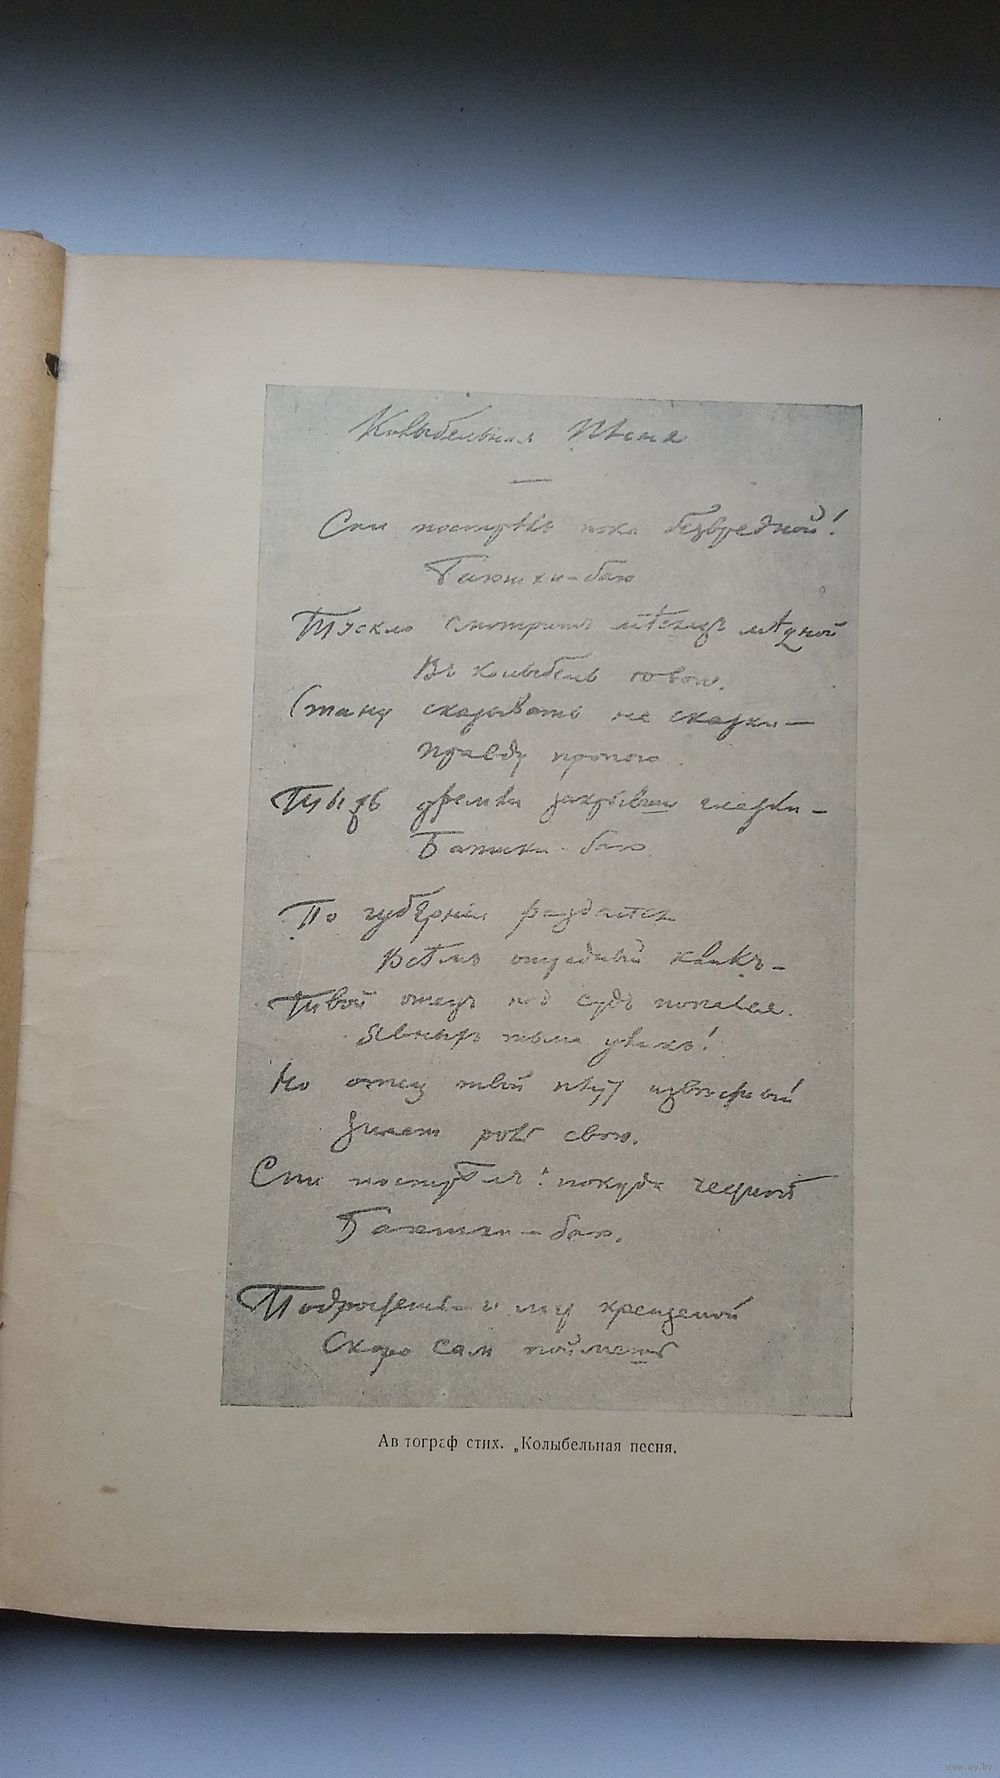 Колыбельная Пѣсня
Спи пострѣлъ пока безвредной!
Баюшки-баю
Тускло смотритъ мѣсяцъ мѣдной
Въ колыбель твою.
Стану сказывать не сказки—
Правду пропою
Ты жъ дремли закрывши глазки—
Баюшки-баю
По губернiи раздается
Всѣмъ отрадный кликъ—
Твой отецъ под судъ попался.
Явныхъ тьма уликъ!
Но отец твой плут извѣстный
Знает роль свою.
Спи пострѣлъ: покуда честной
Баюшки-баю.
Подростешь и мир крещеной
Скоро сам поймешь
Автограф стих. „Колыбельная песня.
www.ay.by